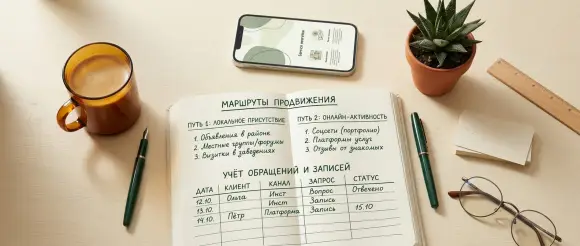 МАРШРУТЫ ПРОДВИЖЕНИЯ
ПУТЬ 1: ЛОКАЛЬНОЕ ПРИСУТСТВИЕ
1. Объявления в районе
2. Местные группы/форумы
3. Визитки в заведениях
ПУТЬ 2: ОНЛАЙН-АКТИВНОСТЬ
1. Соцсети (портфолио)
2. Платформы услуг
3. Отзывы от знакомых
УЧЁТ ОБРАЩЕНИЙ И ЗАПИСЕЙ
ДАТА КЛИЕНТ КАНАЛ ЗАПРОС СТАТУС
12.10. Ольга Инст Вопрос Отвечено
13.10. Инст Запись
14.10. Пётр Платформа Запись 15.10